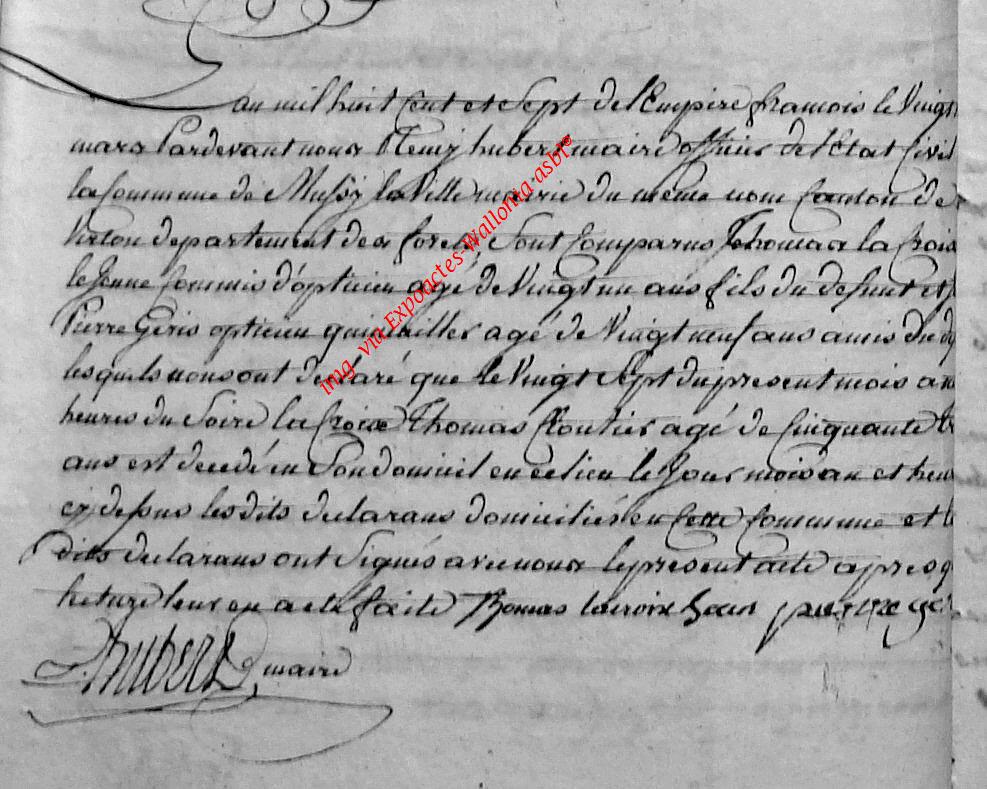 an mil huit Cent et Sept de l'Empire francois le Vingt
mars Pardevant nous Remy hubert maire officier de l'Etat Civil
la Commune de Mussy la Ville mairie du même nom Canton de
Virton departement des forets, Sont Comparus Thomas la Croix
le Jeune Commis d'opticien agé de Vingt un ans fils du defunt et
Pierre Géris opticien quincailler agé de Vingt neuf ans amis du
lesquels nous ont declaré que le Vingt Sept du present mois a
heures du Soire la Croix Thomas Cloutier agé de Cinquante
ans est decedé en Son domicil en ce lieu le Jour mois an et heu
cy dessus les dits declarans domiciliés en Cette Commune et
dits declarans ont Signés avec nous le present acte apres q
lecture leur en a ete faite Thomas lacroix Jean pierre
hubert maire
img. via Expoactes-Wallonia-asbl®